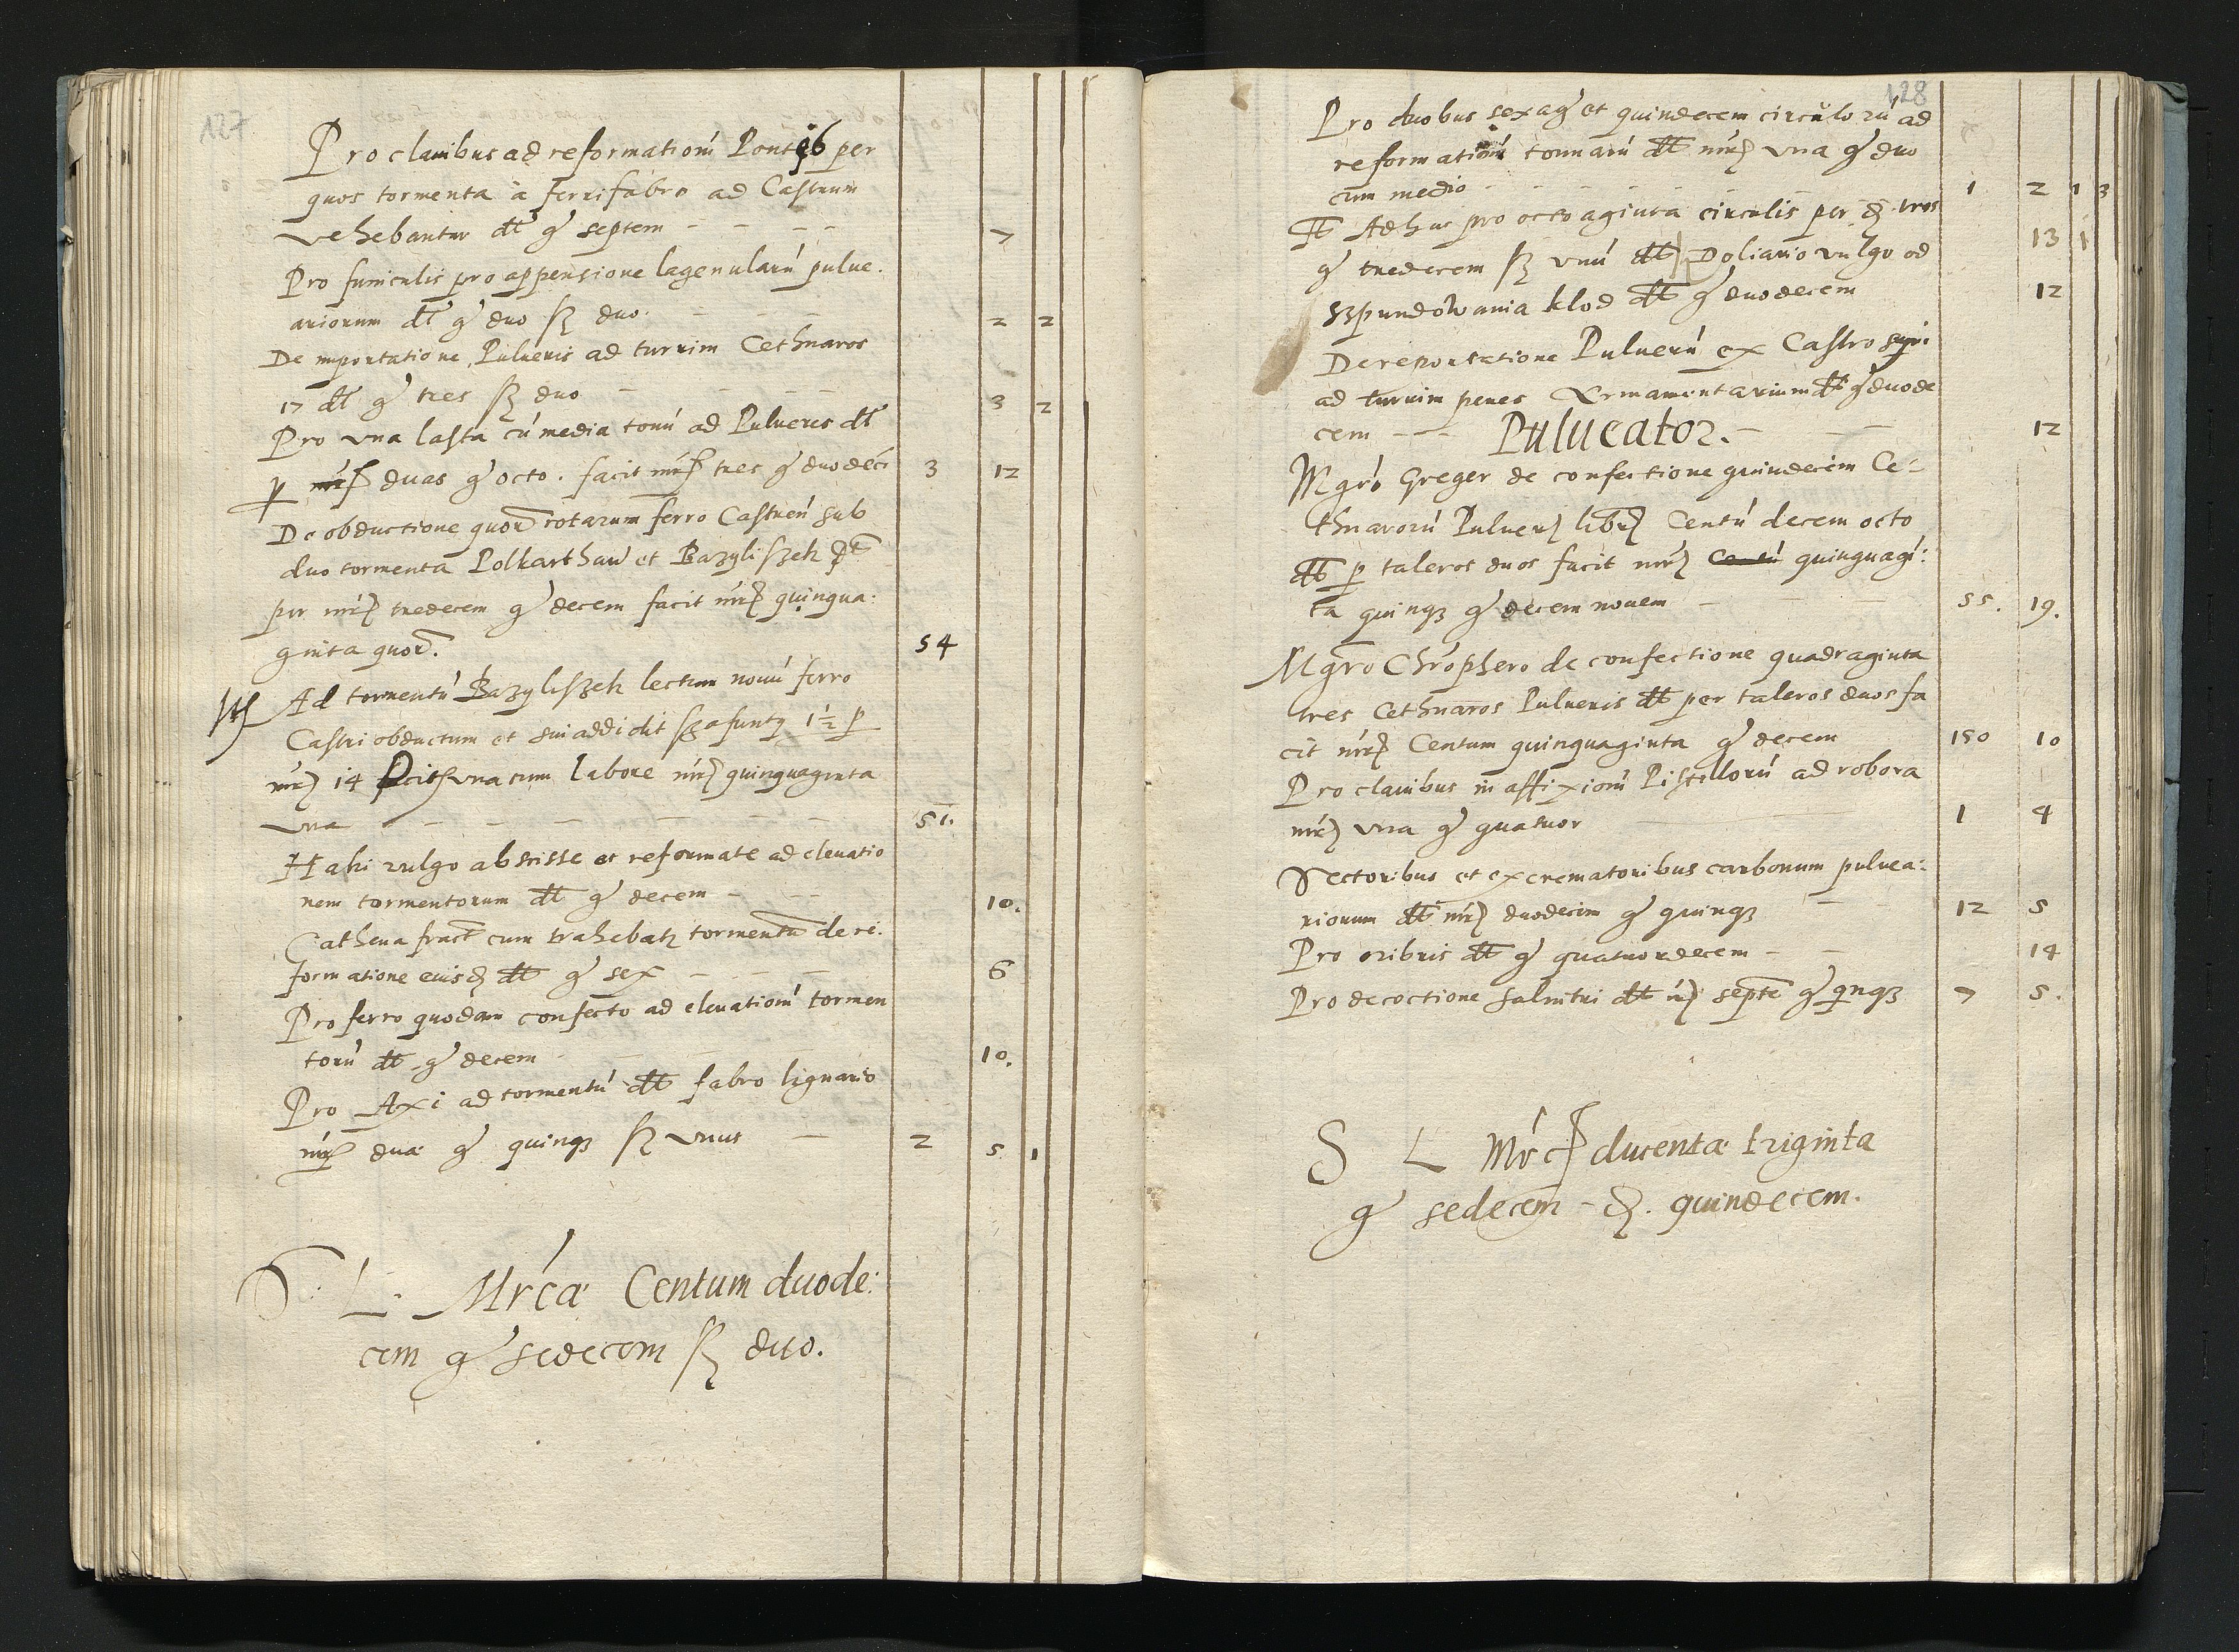 127
Pro clauibus ad reformationú Pontib per
quos tormenta à ferrifabro ad Castrum
vehebantur dt g septem - - - - 7
Pro funiculis pro appensione lagenularú pulue.
ariorum dt g duo sz duo. - - - 2 2
De importatione Pulueris ad turrim Cethnaros
17 dt g tres sz duo - - - 3 2
Pro vna lasta cú media tonú ad Pulueres dt
p mr duas g octo. facit mr tres g duodecí 3 12
De obductione quor rotarum ferro Castren sub
duo tormenta Polkarthaw et Bazyliszek
per mr tredecem g decem facit mr quinqua:
ginta quor. 54
Ad tormentú Bazyliszek lectum nouú ferro
Castri obductum et sui addidit 1½ p
mr 14 vna cum labore mr quinquaginta
vna - - - - - 51.
Haki vulgo abscisse et reformate ad eleuatio
nem tormentorum dt g decem - - 10.
Cathena fract cum trahebatz tormentú de ri.
formatione eius dt g sex - - - 6
Pro ferro quodam confecto ad eleuationú tormen
torú dt g decem - - - 10.
Pro Axi ad tormentú dt fabro lignario
mr duæ g quinqz sz vnus - 2 5 1
S: L. Mrcæ Centum duode:
cem g sedecem sz duo.
128
Pro duobus sexag et quindecem circulorú ad
reformationú tonnarú dt mr vna g duo
cum medio - - - - - 1 2 1 3
It Adhuc pro octoaginta circulis per d tres
g tredecem sz vnú dt Doliario vulgo od 13 1
szpundowania klod dt g duodecem 12
De reportatione Puluerú ex Castro
ad turrim penes Armamentarium dt g duode
cem - - - - - 12
Pulueator.
Mgró Greger de confectione quindecim Ce:
thnarorú Pulueri libr Centú decem octo
dt p taleros duos facit mr Centú quinquagí:
ta quinqz g decem nouem - - 55. 19.
Mgro Chróphero de confectione quadraginta
tres Cethnaros Pulueris dt per taleros duos fa
cit mr Centum quinquaginta g decem 150 10
Pro clauibus in affixionú Pistellorú ad robora
mr vna g quatuor 1 4
Sectoribus et excrematoribus carbonum puluea:
riorum dt mr duodecim g quinqz - 12 5
Pro cribris dt g quatuordecem - - 14
Pro decoctione salnitri dt mr septe g qinqz 7 5.
S L Mrc ducentæ triginta
g sedecem - d. quindecem.